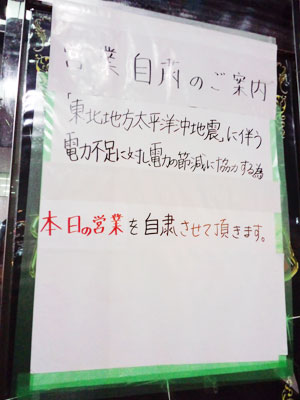 営業自粛のご案内
「東北地方太平洋沖地震」に伴う
電力不足に対し、電力の節減に協力する為
本日の営業を自粛させて頂きます。